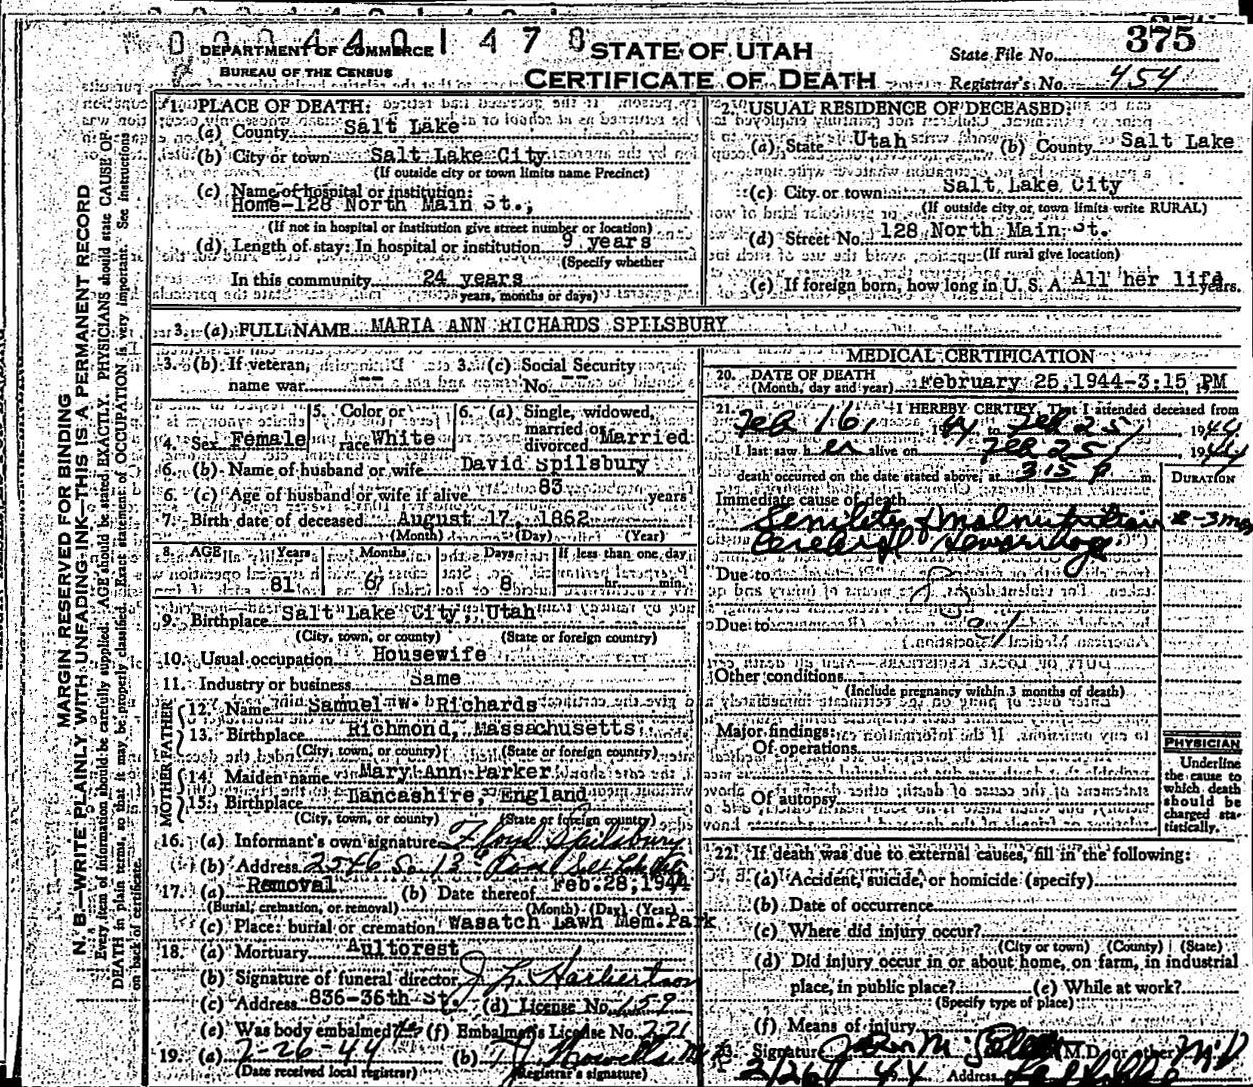 0004401478
DEPARTMENT OF COMMERCE
BUREAU OF THE CENSUS
STATE OF UTAH
CERTIFICATE OF DEATH
State File No. 375
Registrar's No. 454
MARGIN RESERVED FOR BINDING
N. B.—WRITE PLAINLY WITH UNFADING INK—THIS IS A PERMANENT RECORD
Every item of information should be carefully supplied. AGE should be stated EXACTLY. PHYSICIANS should state CAUSE OF
DEATH in plain terms, so that it may be properly classified. Exact statement of OCCUPATION is very important. See instructions
on back of certificate.
1. PLACE OF DEATH:
(a) County Salt Lake
(b) City or town Salt Lake City
(If outside city or town limits name Precinct)
(c) Name of hospital or institution:
Home-128 North Main St.,
(If not in hospital or institution give street number or location)
(d) Length of stay: In hospital or institution 9 years
(Specify whether
In this community 24 years
years, months or days)
2. USUAL RESIDENCE OF DECEASED
(a) State Utah (b) County Salt Lake
(c) City or town Salt Lake City
(If outside city or town limits write RURAL)
(d) Street No. 128 North Main St.
(If rural give location)
(e) If foreign born, how long in U. S. A. All her life years.
3. (a) FULL NAME MARIA ANN RICHARDS SPILSBURY
3. (b) If veteran, name war -- 3. (c) Social Security No. --
4. Sex Female 5. Color or race White 6. (a) Single, widowed, married or divorced Married
6. (b) Name of husband or wife David Spilsbury
6. (c) Age of husband or wife if alive 83 years
7. Birth date of deceased August 17, 1862
(Month) (Day) (Year)
8. AGE Years Months Days If less than one day
81 6 8 hr. min.
9. Birthplace Salt Lake City, Utah
(City, town, or county) (State or foreign country)
10. Usual occupation Housewife
11. Industry or business Same
FATHER
12. Name Samuel W. Richards
13. Birthplace Richmond, Massachusetts
(City, town, or county) (State or foreign country)
MOTHER
14. Maiden name Mary Ann Parker
15. Birthplace Lancashire, England
(City, town, or county) (State or foreign country)
16. (a) Informant's own signature Floyd Spilsbury
(b) Address 2546 So. 13th East Salt Lake City
17. (a) Removal (b) Date thereof Feb. 28, 1944
(Burial, cremation, or removal) (Month) (Day) (Year)
(c) Place: burial or cremation Wasatch Lawn Mem. Park
18. (a) Mortuary Aultorest
(b) Signature of funeral director
(c) Address 836-36th St. (d) License No. 159
(e) Was body embalmed? (f) Embalmer's License No. 221
19. (a) 2-26-44 (b)
(Date received local registrar) (Registrar's signature)
MEDICAL CERTIFICATION
20. DATE OF DEATH
(Month, day and year) February 25, 1944-3:15 PM
21. I HEREBY CERTIFY, That I attended deceased from
Feb 16, 44 to Feb 25, 1944
I last saw her alive on Feb 25, 1944
death occurred on the date stated above, at 3 15 p m. DURATION
Immediate cause of death
Senility & Malnutrition 2-3 mos
Cerebral Hemorrhage
Due to
Due to
Other conditions
(Include pregnancy within 3 months of death)
Major findings:
Of operations
Of autopsy
PHYSICIAN
Underline
the cause to
which death
should be
charged sta-
tistically.
22. If death was due to external causes, fill in the following:
(a) Accident, suicide, or homicide (specify)
(b) Date of occurrence
(c) Where did injury occur?
(City or town) (County) (State)
(d) Did injury occur in or about home, on farm, in industrial
place, in public place? (e) While at work?
(Specify type of place)
(f) Means of injury
23. Signature John M. M.D. or other M.D.
2/26 44 Address